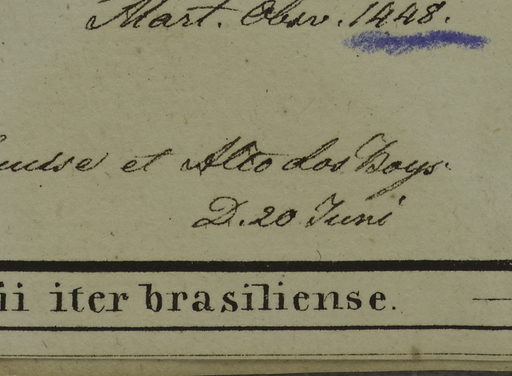 Mart. Obsv. 1448.
et Alto dos Boys.
D. 20 Juni
ii iter brasiliense.